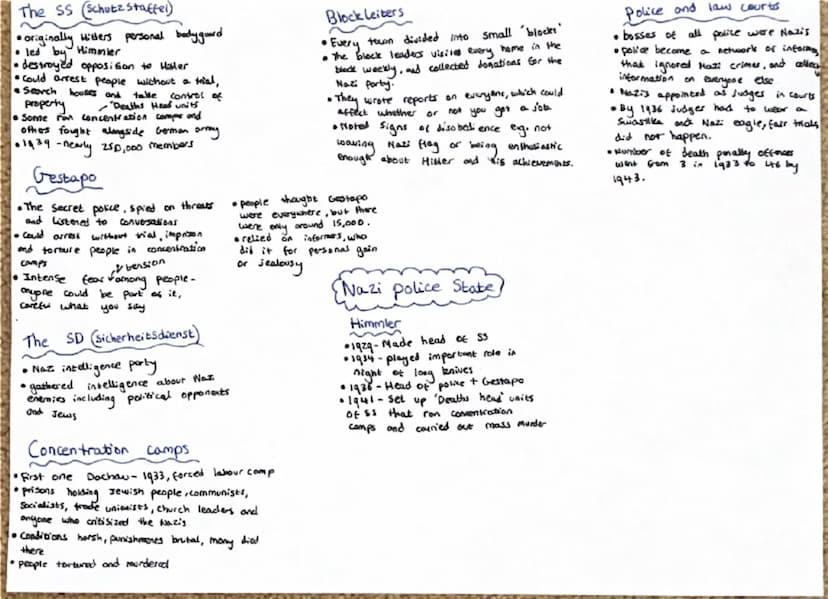 The SS (Schutzstaffel)
• originally Hitlers personal bodyguard
• led by Himmler
• destroyed opposition to Hitler
• Could arrest people without a trial,
Search houses and take control of
property
Deaths Head units
• Some ran concentration camps and
others fought alongside German army
• 1939 - nearly 250,000 members
Gestapo
• The Secret police, spied on threats
and listened to conversations
• Could arrest without trial, imprison
and torture people in concentration
camps
& tension
• Intense fear among people -
anyone could be part of it,
careful what you say
• people thought Gestapo
were everywhere, but there
were only around 15,000.
• relied on informers, who
did it for personal gain
or jealousy
The SD (Sicherheitsdienst)
• Nazi intelligence party
• gathered intelligence about Nazi
enemies including political opponents
and Jews
Concentration camps
• First one Dachau - 1933, forced labour camp
• prisons holding Jewish people, communists,
Socialists, trade unionists, church leaders and
anyone who critisized the Nazis
• Conditions harsh, punishments brutal, many died
there
• people tortured and murdered
Blockleiters
• Every town divided into small 'blocks'
• The block leaders visited every home in the
block weekly, and collected donations for the
Nazi party.
• They wrote reports on everyone, which could
affect whether or not you got a job
• Noted signs of disobedience e.g. not
waving Nazi flag or being enthusiastic
enough about Hitler and his achievements.
Nazi police State
Himmler
• 1929 - Made head of SS
• 1934 - played important role in
night of long knives
• 1936 - Head of police + Gestapo
• 1941 - Set up 'Deaths head' units
of SS that ran concentration
camps and carried out mass murder
Police and law courts
• bosses of all police were Nazis
• police became a network of informers
that ignored Nazi crimes, and
information on everyone else
• Nazis appointed as Judges in courts
• By 1936 Judges had to wear a
Swastika and Nazi eagle, fair trials
did not happen.
• Number of death penalty offences
went from 3 in 1933 to 46 by
1943.